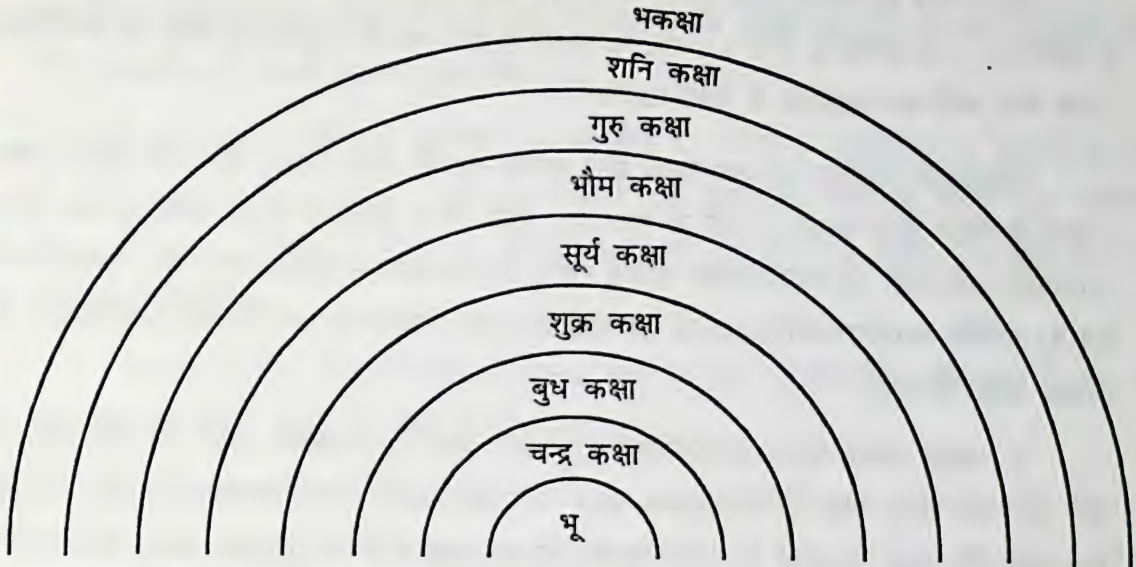 भकक्षा
शनि कक्षा
गुरु कक्षा
भौम कक्षा
सूर्य कक्षा
शुक्र कक्षा
बुध कक्षा
चन्द्र कक्षा
भू